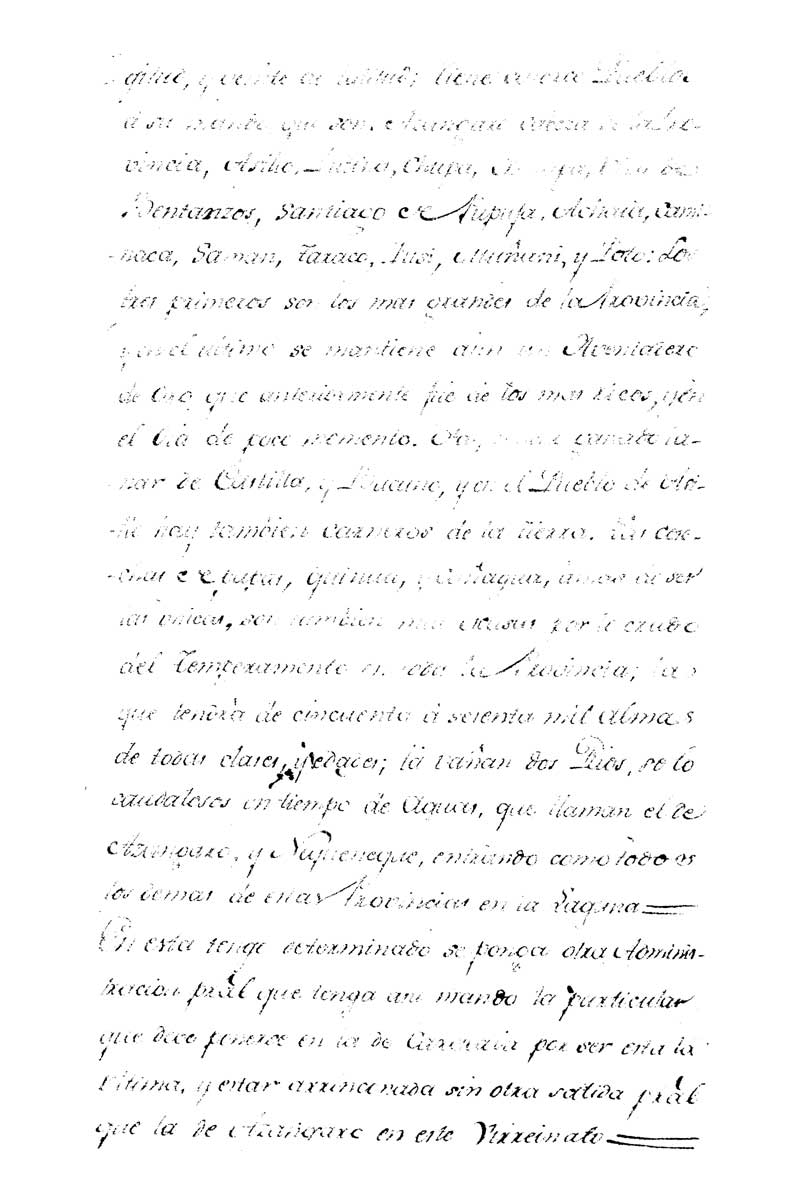 gitud, y veinte de latitud; tiene catorce Pueblos
á su mando, que son. Azangaro caveza de la Pro-
vincia, Asillo, Chupa, San Juan de
Bentanzos, Santiago de Pupuja, Achaia, Cami-
naca, Saman, Taraco, Pusi, Muñani, y Poto: Los
tres primeros son los mas grandes de la Provincia,
y en el ultimo se mantiene aun un Aventadero
de Oro, que anteriormente fue de los mas ricos, y en
el dia de poco momento. ganado la-
nar de Castilla, y Bacuno, y en el Pueblo de Asi-
llo hay tambien carneros de la tierra. Las cose-
chas de papas, quinua, y cañagua, de ser
las unicas, son tambien mui escasas por lo crudo
del Temperamento en toda la Provincia; la
que tendrá de cincuenta á sesenta mil almas
de todas clases, y edades; la vañan dos Rios, solo
caudalosos en tiempo de Aguas, que llaman el de
Azangaro, y entrando como todos
los demas de estas Provincias en la Laguna
En esta tengo determinado se ponga otra Adminis-
tracion prâl que tenga a su mando la particular
que deve ponerse en la de Caravaia por ser esta la
ultima, y estar arrinconada sin otra salida prâl
que la de Azangaro en este Virreinato